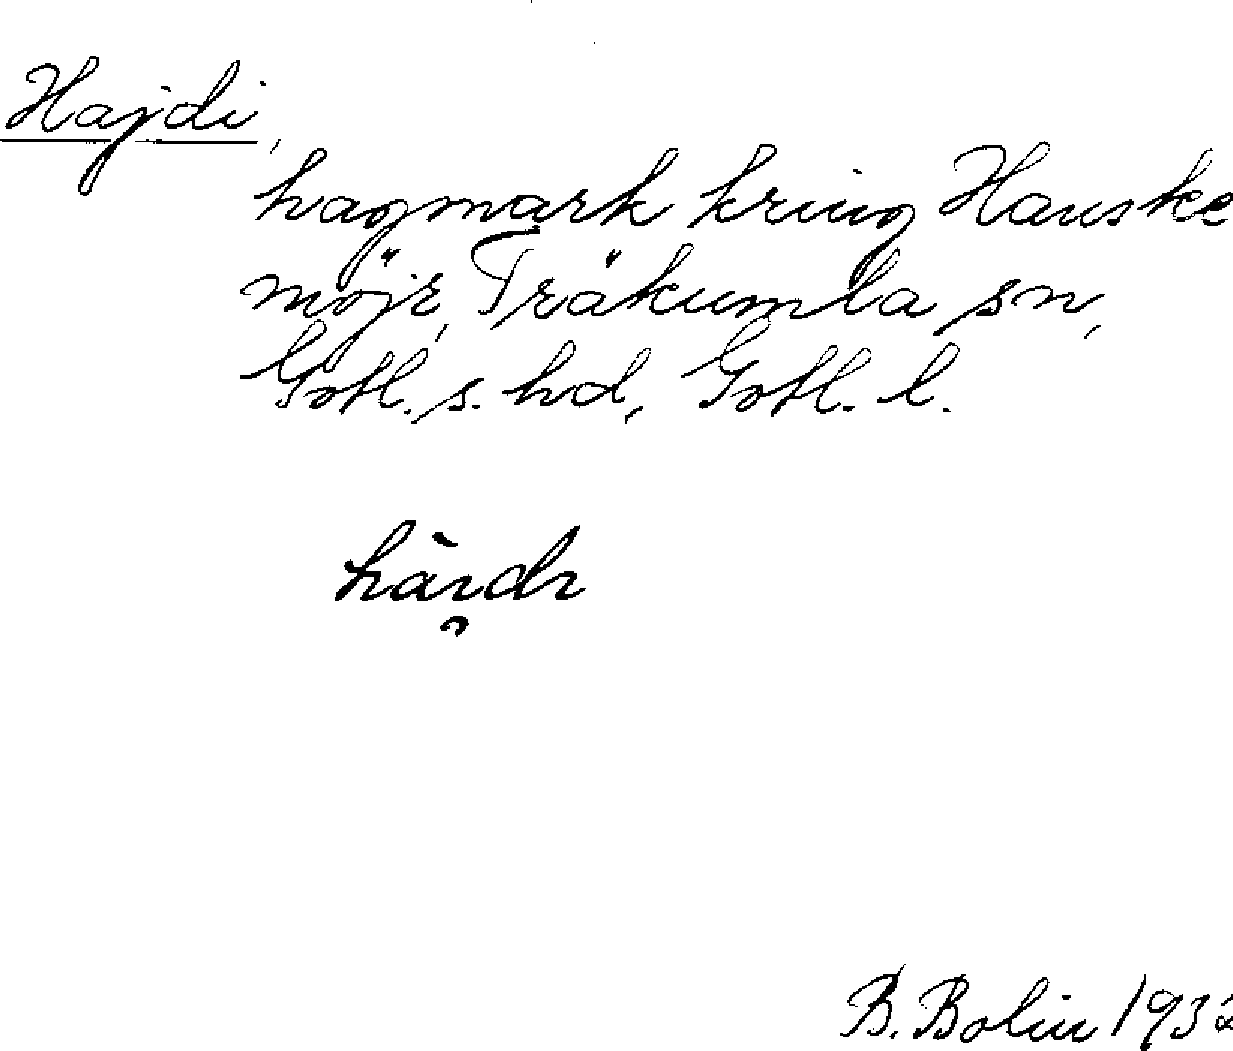 Hajdi,
hagmark kring Hauske
möjr, Träkumla sn,
Gotl. s. hd, Gotl. l.
B. Bolin 1932